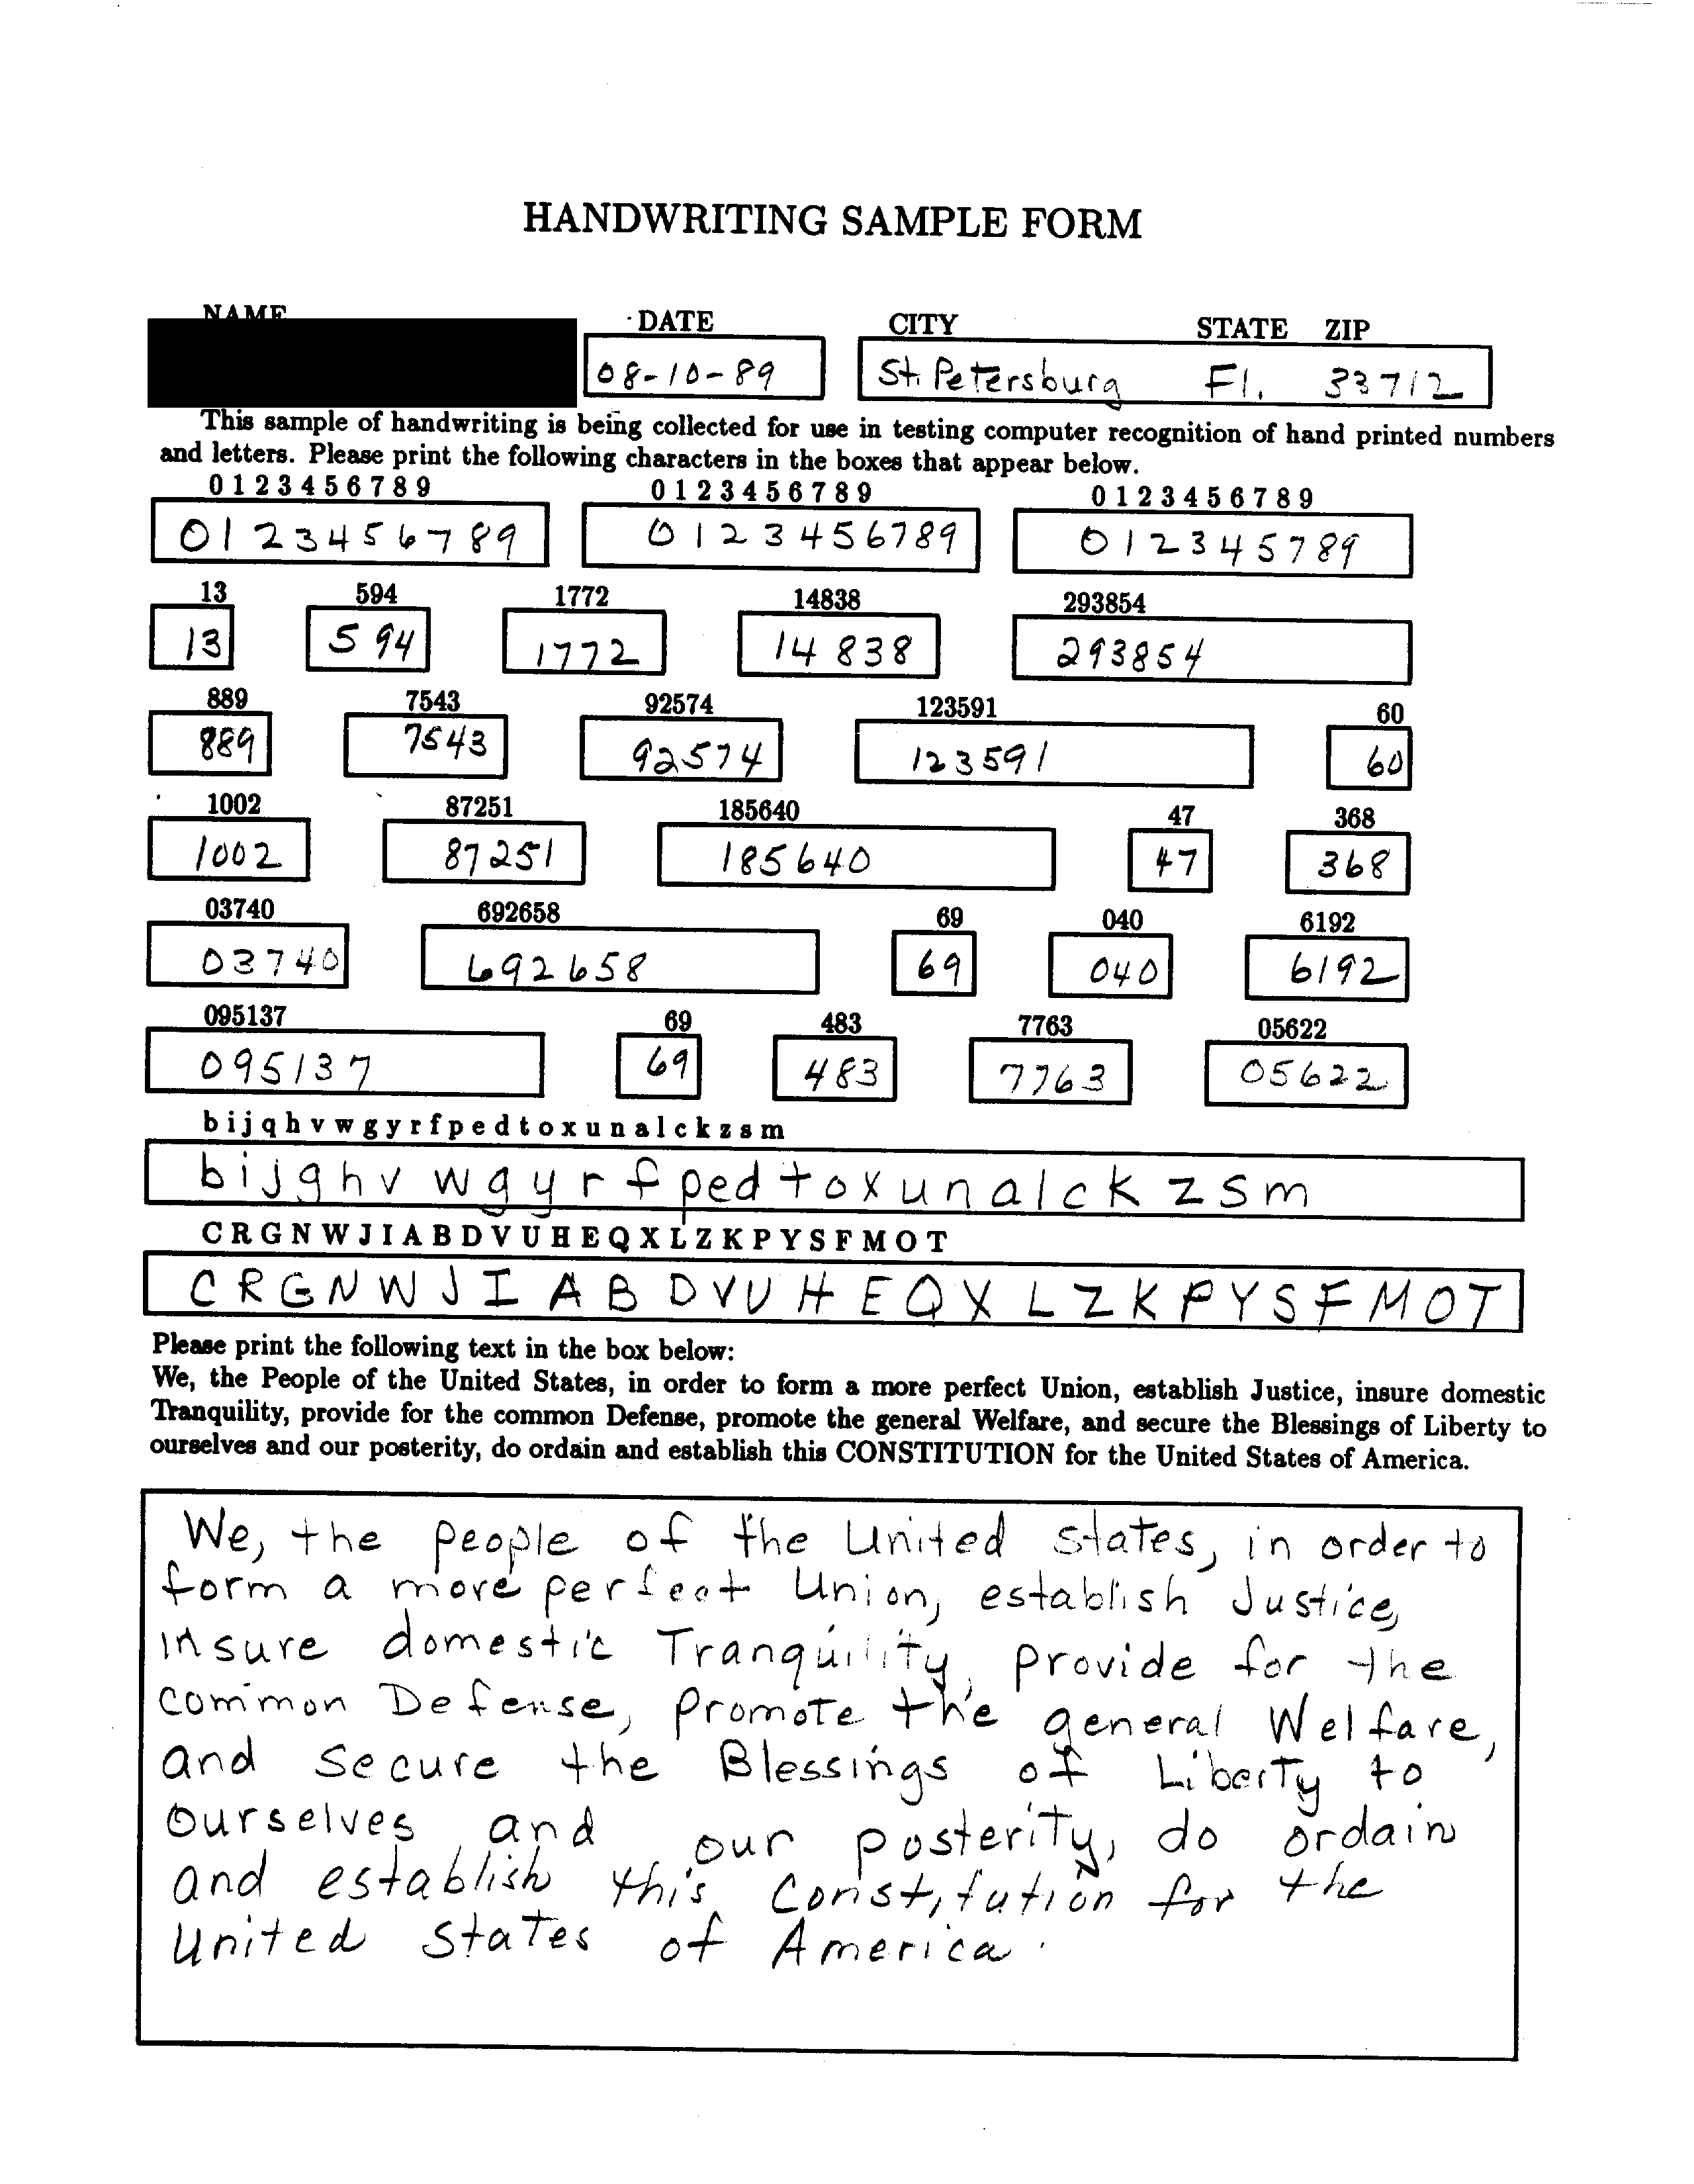 HANDWRITING SAMPLE FORM
NAME DATE CITY STATE ZIP
08-10-89 St. Petersburg Fl. 33712
This sample of handwriting is being collected for use in testing computer recognition of hand printed numbers
and letters. Please print the following characters in the boxes that appear below.
0 1 2 3 4 5 6 7 8 9 0 1 2 3 4 5 6 7 8 9 0 1 2 3 4 5 6 7 8 9
0123456789 0123456789 012345789
13 594 1772 14838 293854
13 594 1772 14838 293854
889 7543 92574 123591 60
889 7543 92574 123591 60
1002 87251 185640 47 368
1002 87251 185640 47 368
03740 692658 69 040 6192
03740 692658 69 040 6192
095137 69 483 7763 05622
095137 69 483 7763 05622
b i j q h v w g y r f p e d t o x u n a l c k z s m
b i j g h v w g y r f p e d t o x u n a l c k z s m
C R G N W J I A B D V U H E Q X L Z K P Y S F M O T
C R G N W J I A B D V U H E Q X L Z K P Y S F M O T
Please print the following text in the box below:
We, the People of the United States, in order to form a more perfect Union, establish Justice, insure domestic
Tranquility, provide for the common Defense, promote the general Welfare, and secure the Blessings of Liberty to
ourselves and our posterity, do ordain and establish this CONSTITUTION for the United States of America.
We, the people of the United States, in order to
form a more perfect Union, establish Justice,
insure domestic Tranquility, provide for the
common Defense, promote the general Welfare,
and secure the Blessings of Liberty to
ourselves and our posterity, do ordain
and establish this Constitution for the
United States of America.